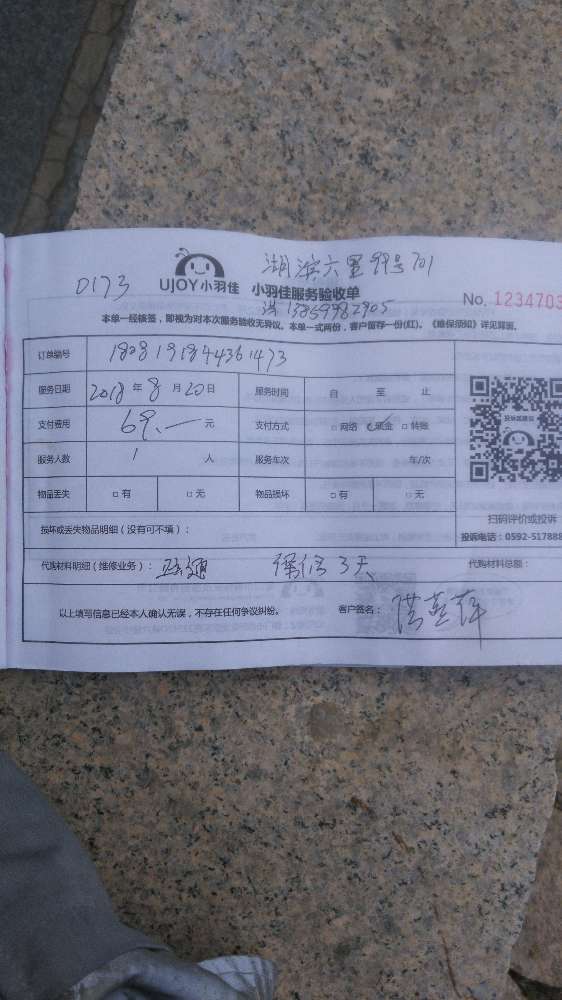 湖滨六里99号701
D173 UJOY小羽佳 小羽佳服务验收单
洪13859982905 No. 1234703
本单一经核签，即视为对本次服务验收无异议。本单一式两份，客户留存一份(红)。《维保须知》详见背面。
订单编号
服务日期 2018年8月20日 服务时间 自 至 止
支付费用 69.一元 支付方式 □网络 ☑现金 □转账
服务人数 1 人 服务车次 车/次
物品丢失 □有 □无 物品损坏 □有 □无
投诉或建议
扫码评价或投诉
投诉电话：0592-517888
损坏或丢失物品明细（没有可不填）：
代购材料明细（维修业务）： 疏通 保修3天 代购材料总额：
以上填写信息已经本人确认无误，不存在任何争议纠纷。 客户签名：